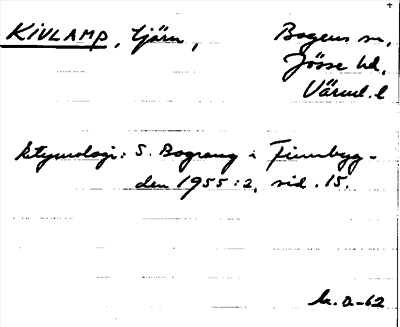 KIVLAMP, tjärn, Bogens sn,
Jösse hd,
Värml. l
Etymologi: S. Bograng i Finnbyg-
den 1955:2, sid. 15.